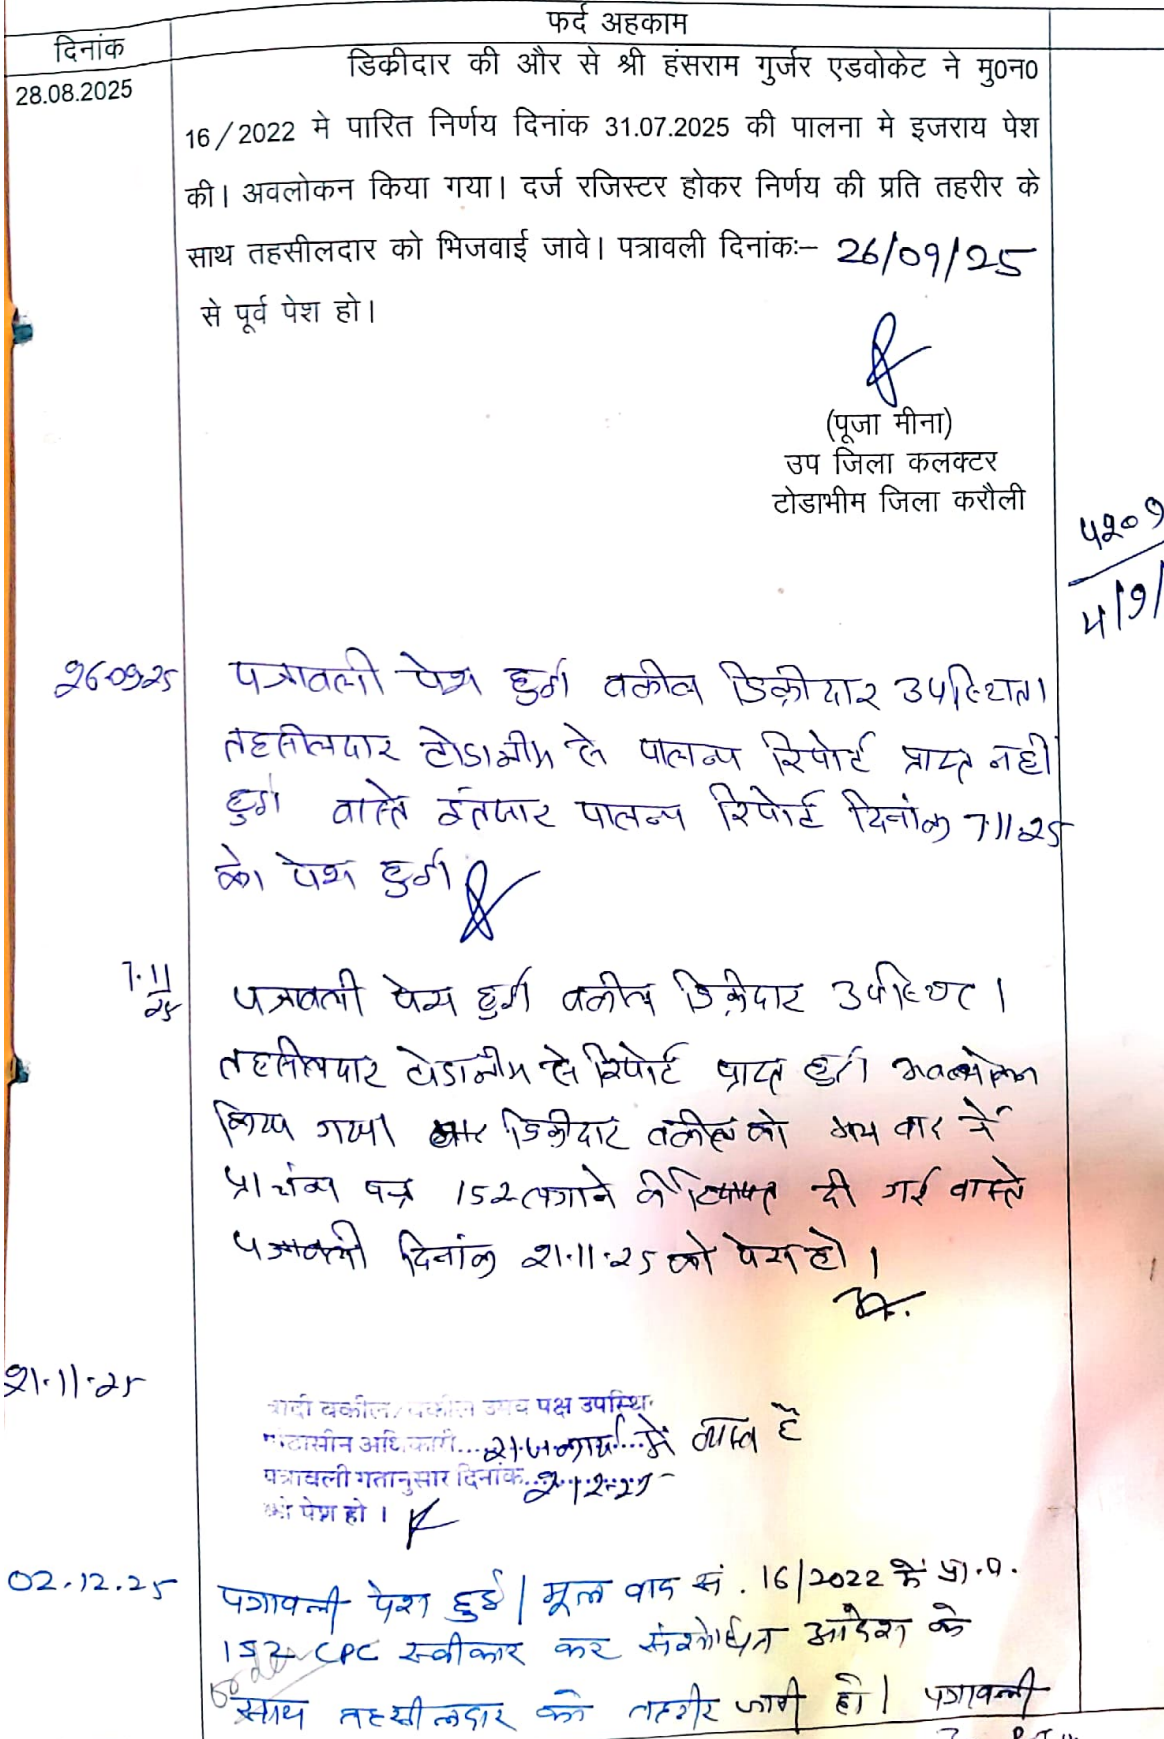 फर्द अहकाम
दिनांक
28.08.2025
डिकीदार की और से श्री हंसराम गुर्जर एडवोकेट ने मु0न0
16/2022 मे पारित निर्णय दिनांक 31.07.2025 की पालना मे इजराय पेश
की। अवलोकन किया गया। दर्ज रजिस्टर होकर निर्णय की प्रति तहरीर के
साथ तहसीलदार को भिजवाई जावे। पत्रावली दिनांकः– 26/09/25
से पूर्व पेश हो।
(पूजा मीना)
उप जिला कलक्टर
टोडाभीम जिला करौली
4/9/
26.09.25
पत्रावली पेश हुई वकील डिक्रीदार उपस्थित।
तहसीलदार टोडाभीम से पालना रिपोर्ट प्राप्त नही
हुई वास्ते इंतजार पालना रिपोर्ट दिनांक 7.11.25
को पेश हुई
7.11
25
पत्रावली पेश हुई वकील डिक्रीदार उपस्थित।
तहसीलदार टोडाभीम से रिपोर्ट प्राप्त हुई अवलोकन
किया गया। डिक्रीदार वकील को वाद में
प्रार्थना पत्र 152 लगाने की दी गई वास्ते
पत्रावली दिनांक 21.11.25 को पेश हो।
21.11.25
वादी वकील/वकील उभय पक्ष उपस्थि
पीठासीन अधिकारी... राजकार्य...में व्यस्त है
पत्रावली गतानुसार दिनांक... 2.12.25
को पेश हो।
02.12.25
पत्रावली पेश हुई। मूल वाद सं. 16/2022 में प्रा.प.
152 CPC स्वीकार कर संशोधित आदेश के
साथ तहसीलदार को तहरीर जारी हो। पत्रावली